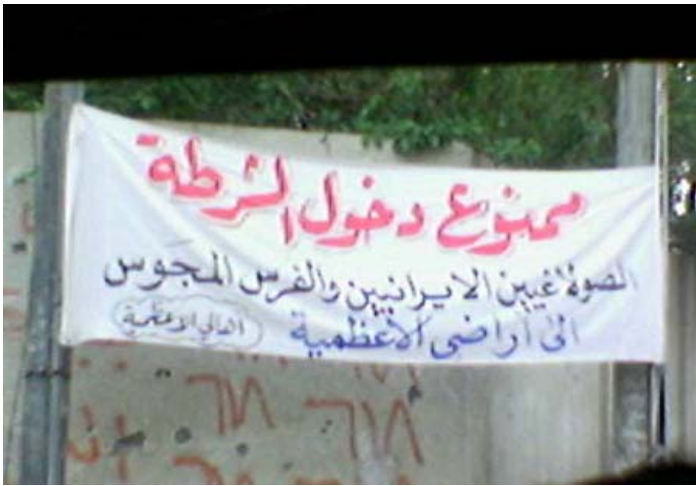 ممنوع دخول الشرطة
الصولاغيين الايرانيين والفرس المجوس
الى اراضي الأعظمية
اهالي الاعظمية
٦١٨ ٦١٨